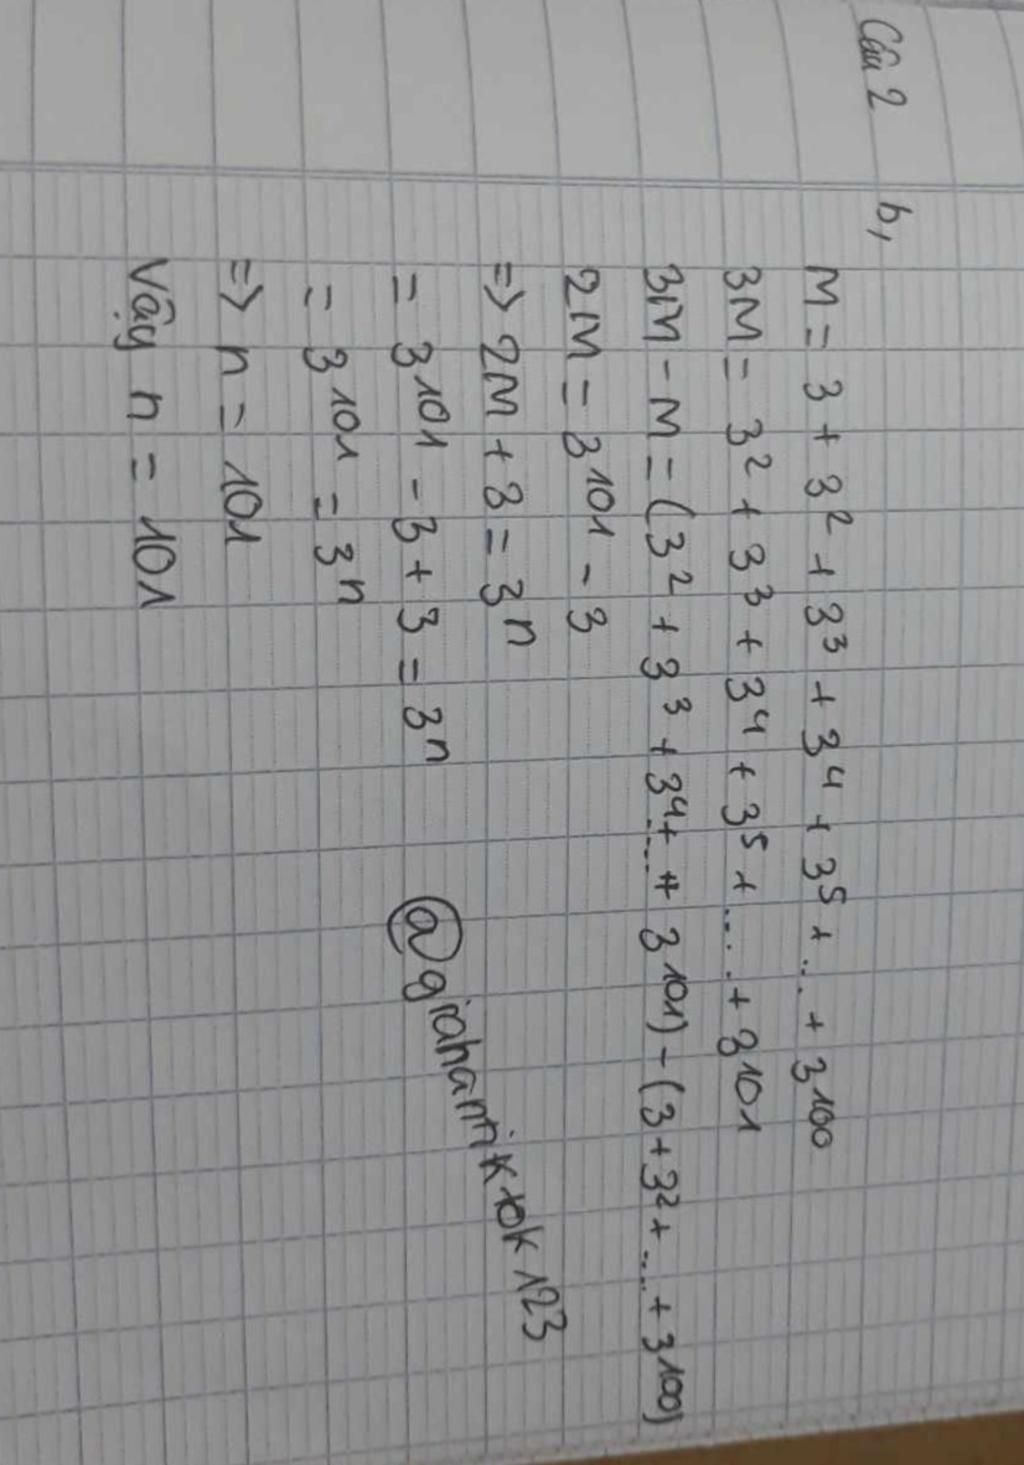 Câu 2
b,
M = 3 + 3² + 3³ + 3⁴ + 3⁵ + ... + 3¹⁰⁰
3M = 3² + 3³ + 3⁴ + 3⁵ + .... + 3¹⁰¹
3M - M = (3² + 3³ + 3⁴ + .... + 3¹⁰¹) - (3 + 3² + .... + 3¹⁰⁰)
2M = 3¹⁰¹ - 3
=> 2M + 3 = 3ⁿ
= 3¹⁰¹ - 3 + 3 = 3ⁿ
= 3¹⁰¹ = 3ⁿ
=> n = 101
Vậy n = 101